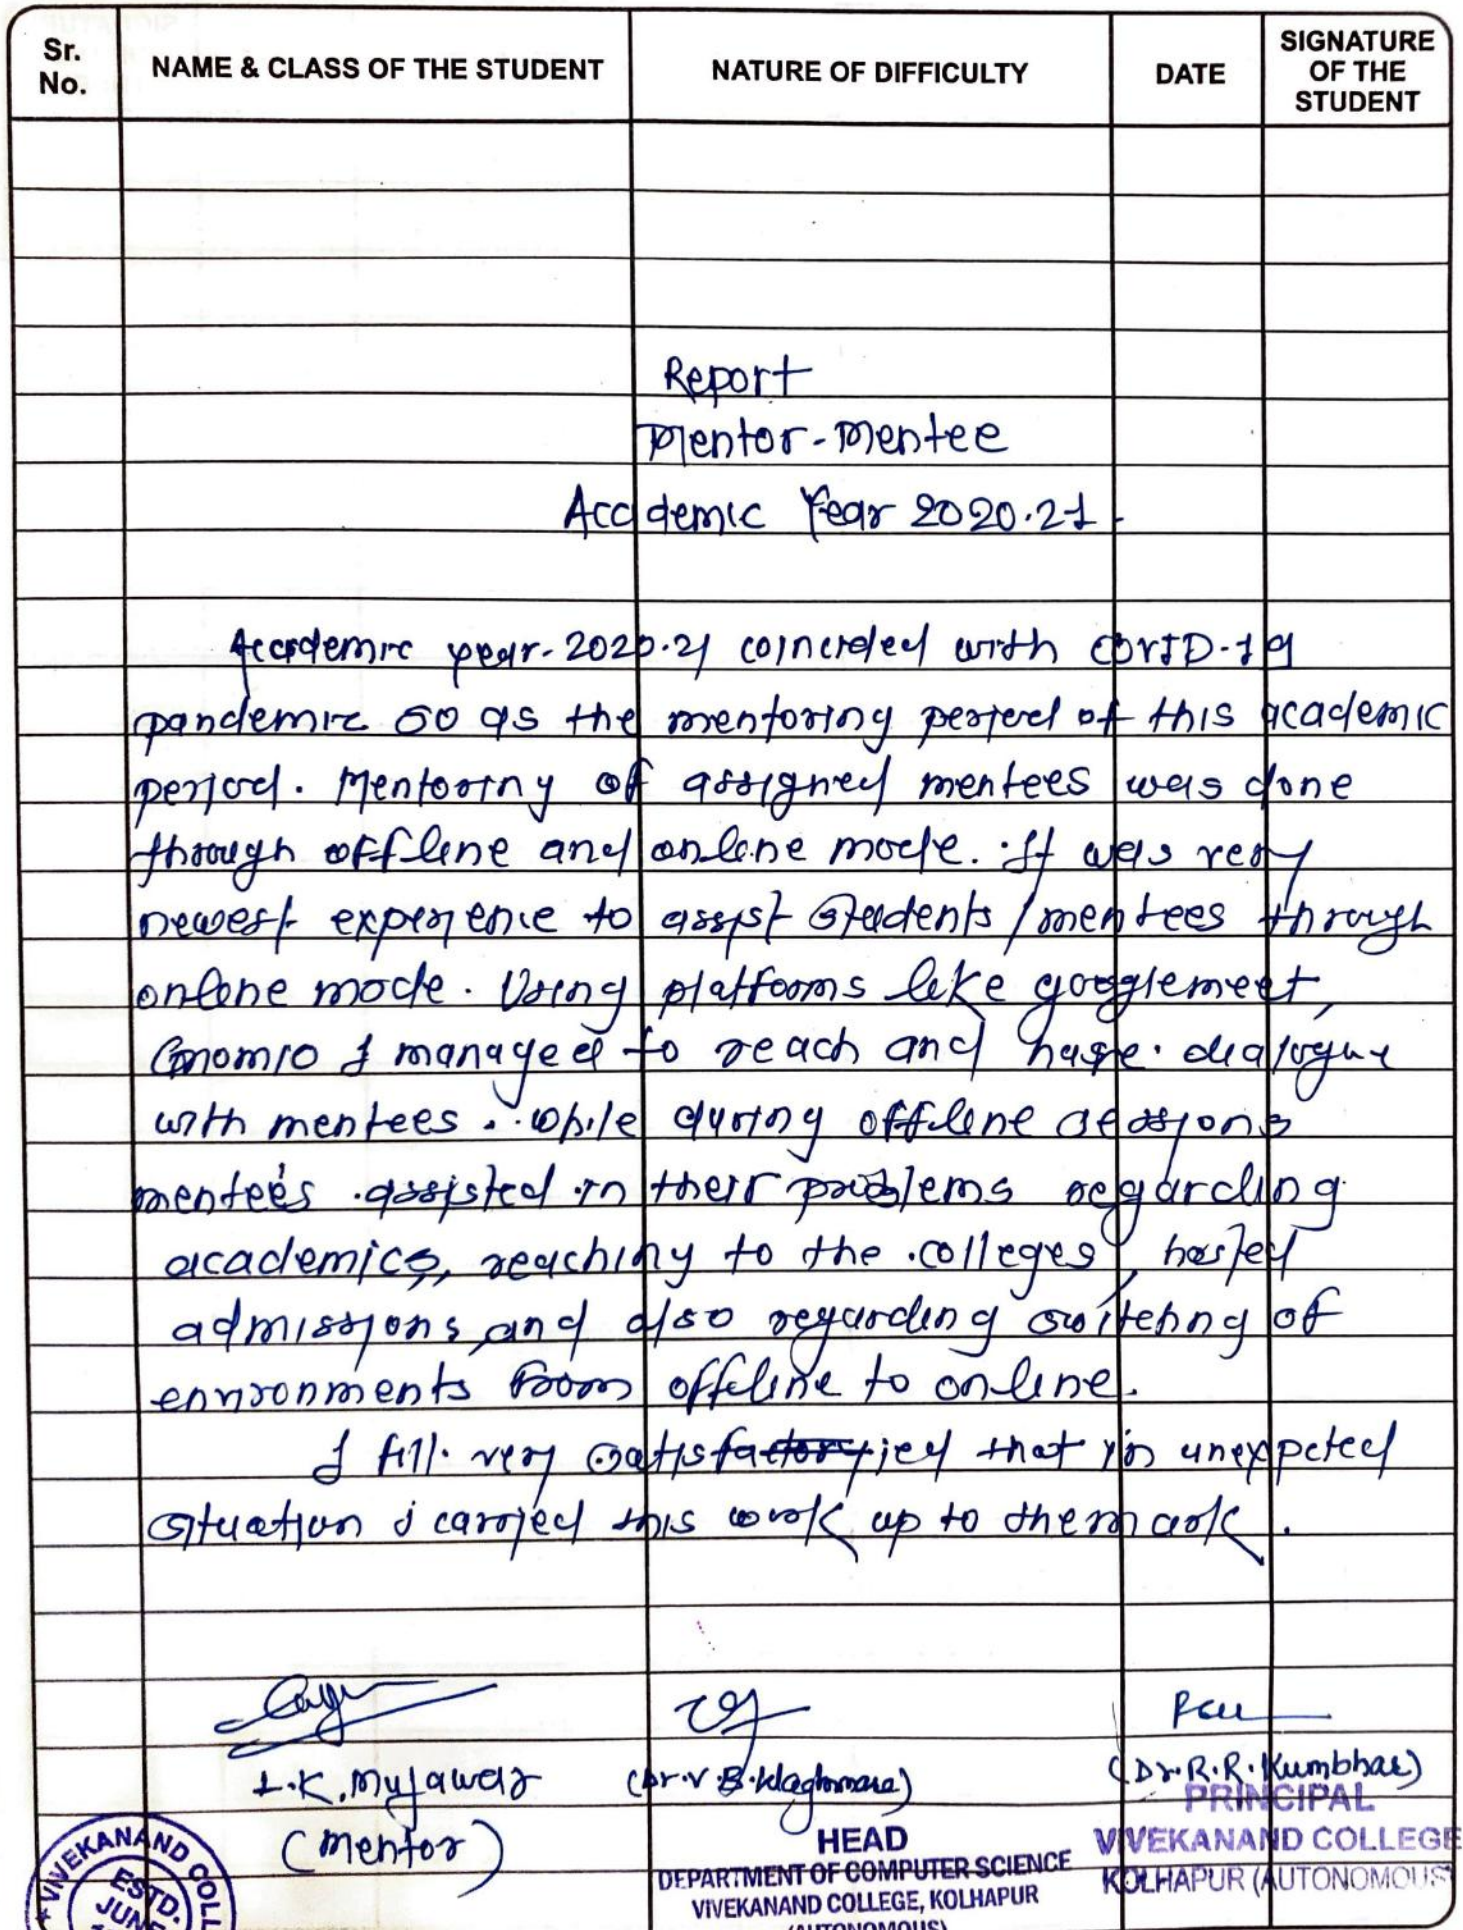 Sr. No.
NAME & CLASS OF THE STUDENT
NATURE OF DIFFICULTY
DATE
SIGNATURE OF THE STUDENT
Report
Mentor-mentee
Academic Year 2020.21.
Academic year-2020.21 coincided with COVID-19
pandemic so as the mentoring period of this academic
period. Mentoring of assigned mentees was done
through offline and online mode. It was very
newest experience to assist students/mentees through
online mode. Using platforms like googlemeet,
I managed to reach and have dialogue
with mentees. while during offline sessions
mentees assisted in their problems regarding
academics, reaching to the colleges, hostel
admissions, and also regarding switching of
environments from offline to online.
I fill very satisfied that in unexpeted
situation i carried this work up to the mark.
I.K. Mujawar
(Mentor)
(Dr. V. B. Waghmare)
HEAD
DEPARTMENT OF COMPUTER SCIENCE
VIVEKANAND COLLEGE, KOLHAPUR
(AUTONOMOUS)
(Dr. R. R. Kumbhar)
PRINCIPAL
VIVEKANAND COLLEGE
KOLHAPUR (AUTONOMOUS)
VIVEKANAND COLL
ESTD.
JUNE